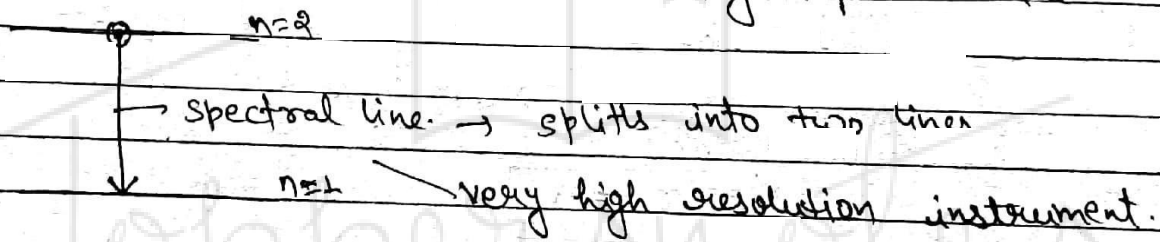 n=2
→ spectral line. → splitts into two lines
n=1 very high resolution instrument.